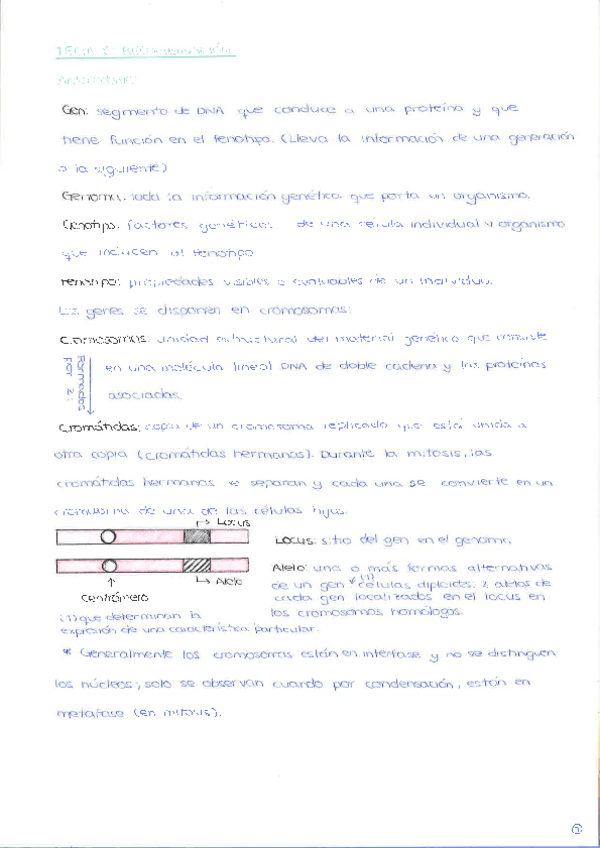 Gen: segmento de DNA que conduce a una proteína y que
tiene función en el fenotipo. (Lleva la información de una generación
a la siguiente)
Genoma: toda la información genética que porta un organismo.
Genotipo: factores genéticos de una célula individual u organismo
que inducen al fenotipo
Fenotipo: propiedades visibles o evaluables de un individuo.
Los genes se disponen en cromosomas:
Cromosomas: unidad estructural del material genético que consiste
en una molécula lineal DNA de doble cadena y las proteínas
asociadas.
Formados por 2:
Cromátidas: copia de un cromosoma replicado que está unida a
otra copia (cromátidas hermanas). Durante la mitosis, las
cromátidas hermanas se separan y cada una se convierte en un
cromosoma de una de las células hijas.
Locus
Alelo
Centrómero
Locus: sitio del gen en el genoma.
Alelo: una o más formas alternativas
de un gen (1) células diploides: 2 alelos de
cada gen localizados en el locus en
los cromosomas homólogos.
(1) que determinan la
expresión de una característica particular.
* Generalmente los cromosomas están en interfase y no se distinguen
los núcleos, solo se observan cuando por condensación, están en
metafase (en mitosis).